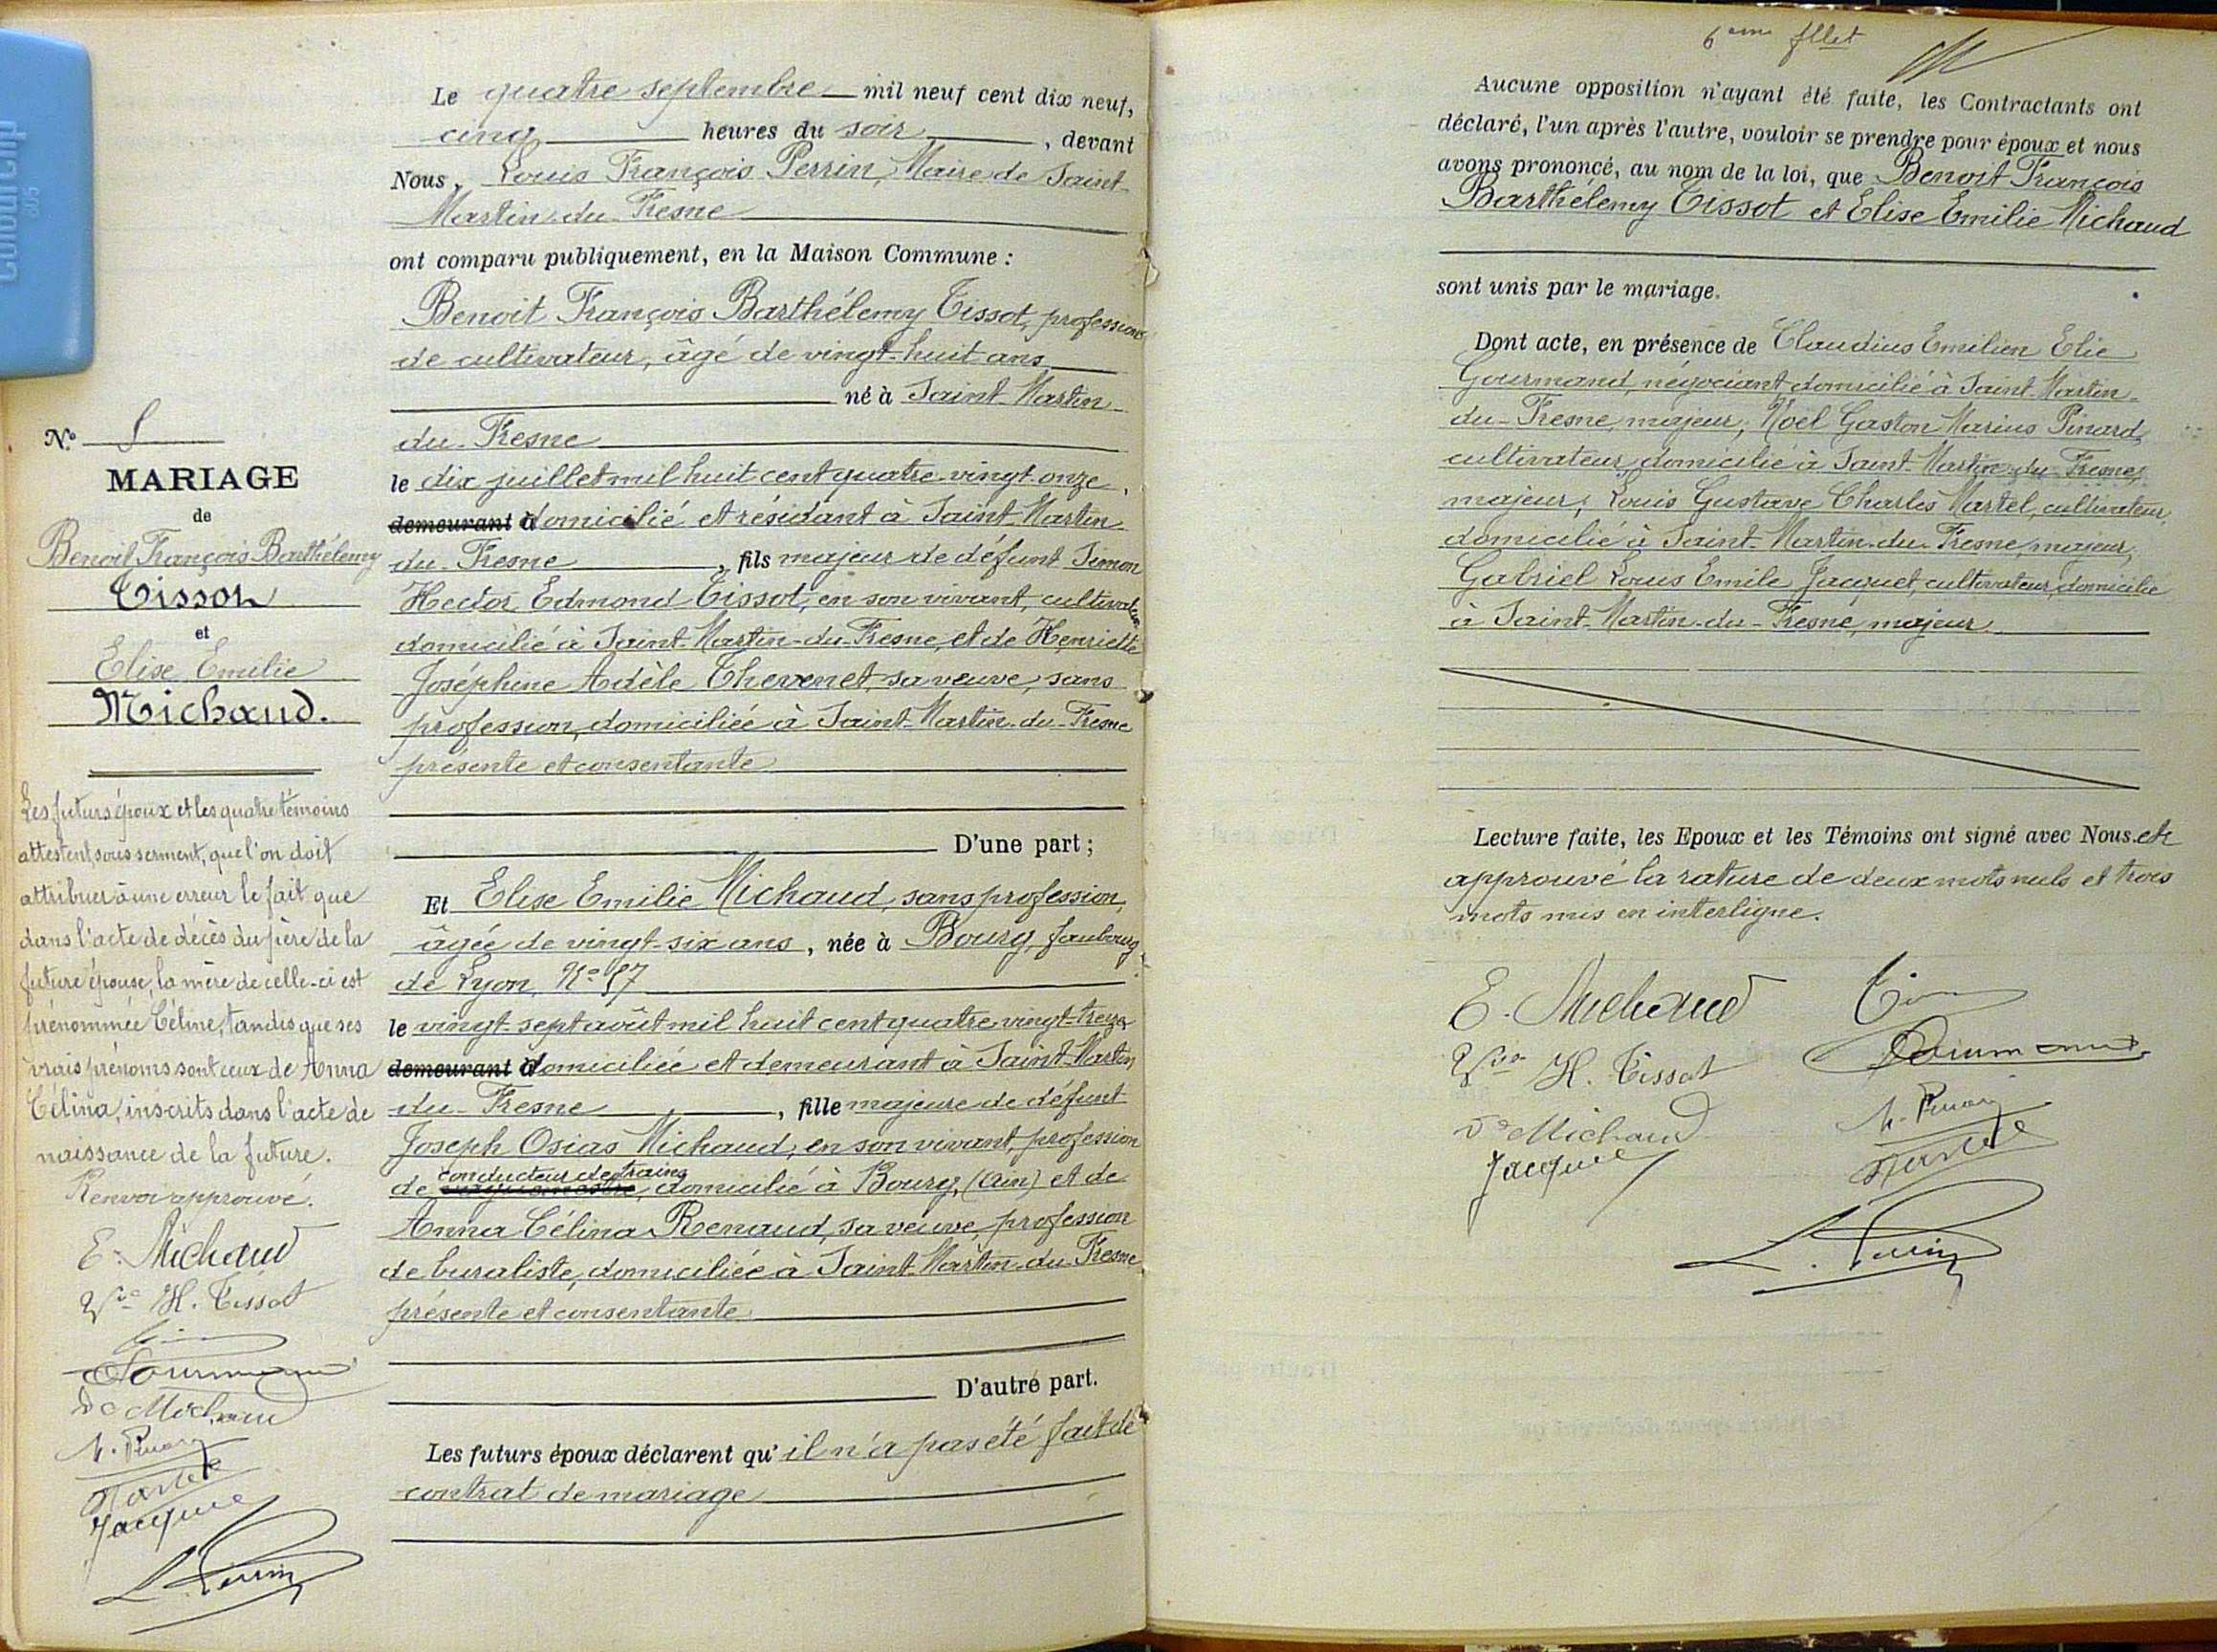 Le quatre septembre mil neuf cent dix neuf,
cinq heures du soir, devant
Nous, Louis François Perrin, Maire de Saint-
Martin-du-Fresne
ont comparu publiquement, en la Maison Commune :
Benoit François Barthélemy Tissot, profession
de cultivateur, âgé de vingt-huit ans
né à Saint-Martin-
du-Fresne
le dix juillet mil huit cent quatre-vingt-onze,
demeurant à domicilié et résidant à Saint-Martin
du-Fresne, fils majeur de défunt Simon
Hector Edmond Tissot, en son vivant, cultivateur
domicilié à Saint-Martin-du-Fresne, et de Henriette
Joséphine Adèle Thevenet, sa veuve, sans
profession, domiciliée à Saint-Martin-du-Fresne
présente et consentante
D'une part ;
Et Elise Emilie Michaud, sans profession,
âgée de vingt-six ans, née à Bourg, faubourg
de Lyon, N°
le vingt-sept août mil huit cent quatre vingt-treize
demeurant à domiciliée et demeurant à Saint-Martin
du-Fresne, fille majeure de défunt
Joseph Osias Michaud, en son vivant, profession
conducteur de trains
de, domicilié à Bourg, (Ain) et de
Anna Célina Renaud, sa veuve, profession
de buraliste, domiciliée à Saint-Martin-du-Fresne
présente et consentante
D'autre part.
Les futurs époux déclarent qu'il n'a pas été fait de
contrat de mariage
N°
MARIAGE
de
Benoit François Barthélemy
Tissot
et
Elise Emilie
Michaud.
Les futurs époux et les quatre témoins
attestent, sous serment, que l'on doit
attribuer à une erreur le fait que
dans l'acte de décès du père de la
future épouse, la mère de celle-ci est
prénommée Céline, tandis que ses
vrais prénoms sont ceux de Anna
Célina, inscrits dans l'acte de
naissance de la future.
Renvoi approuvé.
E. Michaud
Vve H. Tissot
Gourmand
Ve Michaud
N. Pinard
Martel
Jacquet
L. Perrin
6eme fllet
Aucune opposition n'ayant été faite, les Contractants ont
déclaré, l'un après l'autre, vouloir se prendre pour époux et nous
avons prononcé, au nom de la loi, que Benoit François
Barthélemy Tissot et Elise Emilie Michaud
sont unis par le mariage.
Dont acte, en présence de Claudius Emilien Elie
Gourmand, négociant, domicilié à Saint-Martin-
du-Fresne, majeur; Noël Gaston Marius Pinard,
cultivateur, domicilié à Saint-Martin-du-Fresne,
majeur; Louis Gustave Charles Martel, cultivateur,
domicilié à Saint-Martin-du-Fresne, majeur;
Gabriel Louis Emile Jacquet, cultivateur, domicilié
à Saint-Martin-du-Fresne, majeur
Lecture faite, les Epoux et les Témoins ont signé avec Nous. et
approuvé la rature de deux mots nuls et trois
mots mis en interligne.
E. Michaud
Vve H. Tissot
Gourmand
Ve Michaud
N. Pinard
Jacquet
Martel
L. Perrin